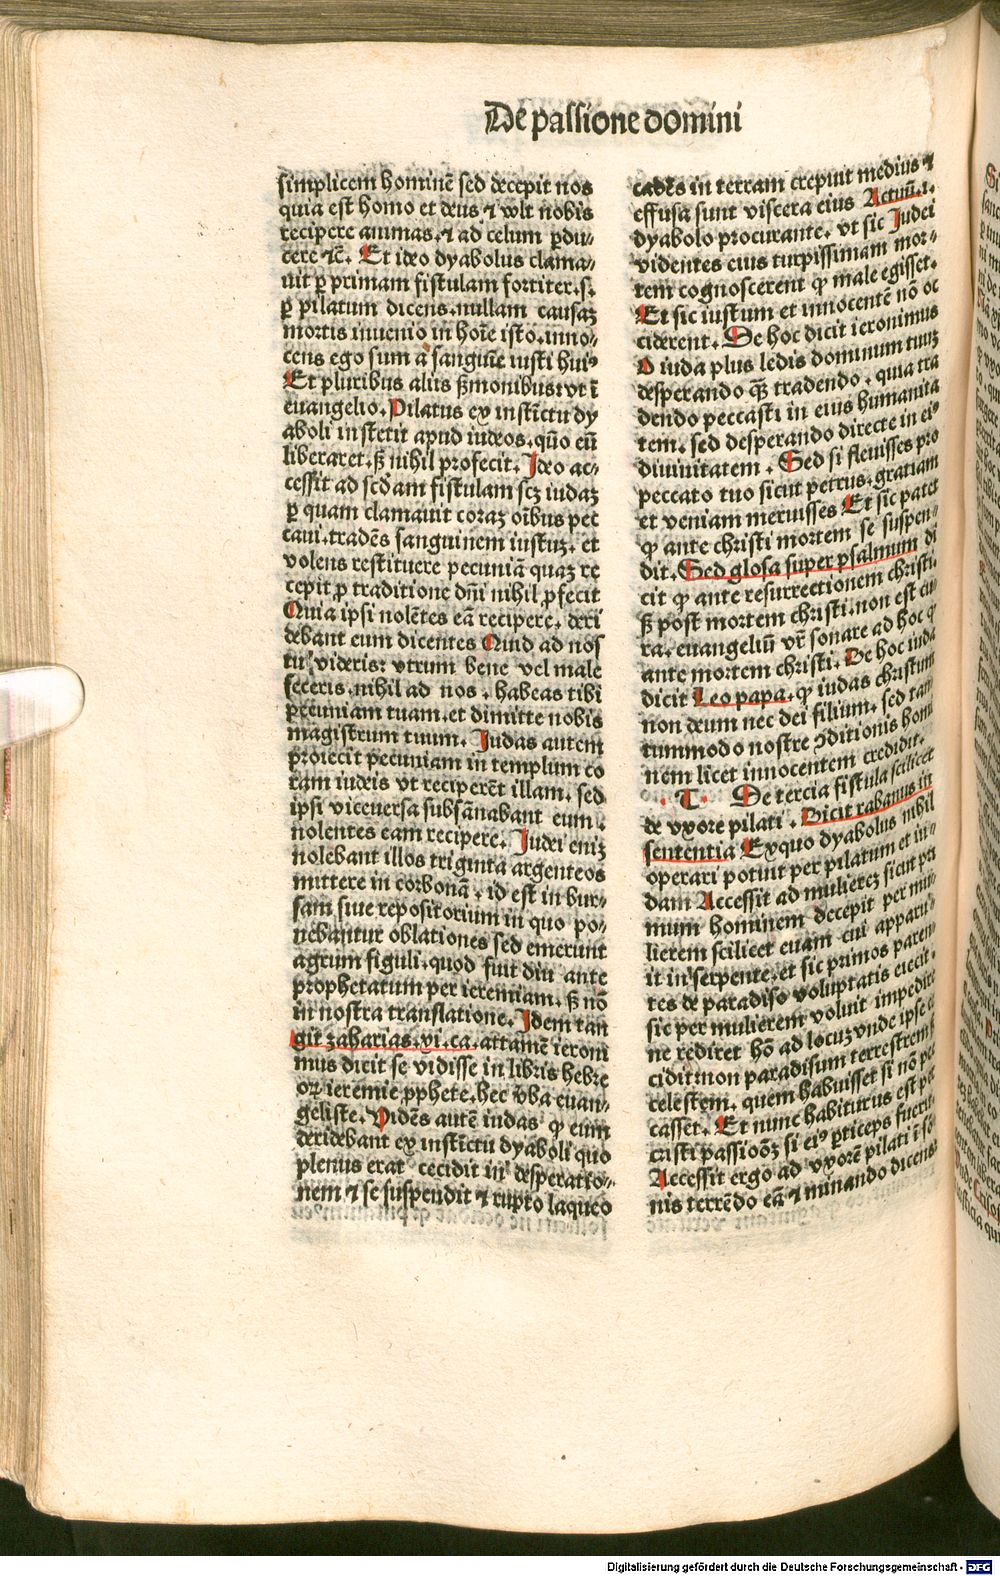 De passione domini
simplicem hominē sed decepit nos
quia est homo et deus ⁊ wlt nobis
recipere animas.⁊ ad celum ꝑdu-
cere ⁊c̄. Et ideo dyabolus clama-
uit ꝑ primam fistulam fortiter.s.
ꝑ pilatum dicens.nullam causaꝫ
mortis inuenio in hoīe isto.inno-
cens ego sum a sanguīe iusti huiꝰ
Et pluribus aliis ẜmonibus:vt ī
euangelio. Pilatus ex instīctu dy
aboli institit apud iudeos.quō eū
liberaret.ß nihil profecit. Ideo ac-
cessit ad scd̄am fistulam scꝫ iudaꝫ
ꝑ quam clamauit coraꝫ oībus pec
caui.tradēs sanguinem iustuꝫ. et
volens restituere pecuniā quaꝫ re
cepit ꝓ traditione dn̄i nihil ꝓfecit
Quia ipsi nolētes eā recipere. deri
debant eum dicentes Quid ad nos
tu videris: vtrum bene vel male
feceris.nihil ad nos. habeas tibi
pecuniam tuam.et dimitte nobis
magistrum tuum. Judas autem
proiecit pecuniam in templum co
ram iudeis vt reciperēt illam. sed
ipsi viceuersa subsānabant eum.
nolentes eam recipere. Judei eniꝫ
nolebant illos triginta argenteos
mittere in corbonā. id est in bur-
sam siue repositorium in quo po-
nebantur oblationes sed emerunt
agrum figuli.quod fuit diu ante
prophetatum per ieremiam. ß nō
in nostra translatione. Idem tan
git zaharias.xi.ca.attamē ieroni
mus dicit se vidisse in libris hebre
oꝝ ieremie ꝓphete.hec v̄ba euan-
geliste. Vidēs autē iudas ꝙ eum
deridebant ex instīctu dyaboli quo
plenus erat cecidit in desperatio-
nem ⁊ se suspendit ⁊ rupto laqueo
cadēs in terram crepuit medius ⁊
effusa sunt viscera eius Actuū.i.
dyabolo procurante. vt sic Judei
videntes eius turpissimam mor-
tem cognoscerent ꝙ male egisset.
Et sic iustum et innocentē nō oc
ciderent. De hoc dicit ieronimus
O iuda plus ledis dominum tuuꝫ
desperando qꝫ̄ tradendo. quia tra
dendo peccasti in eius humanita
tem. sed desperando directe in eiꝰ
diuinitatem. Sed si fleuisses pro
peccato tuo sicut petrus.gratiam
et veniam meruisses Et sic patet
ꝙ ante christi mortem se suspen-
dit. Sed glosa super psalmum di
cit ꝙ ante resurrectionem christi.
ß post mortem christi.non est cu
ra. euangeliū vr̄ sonare ad hoc ꝙ
ante mortem christi. De hoc iuda
dicit Leo papa. ꝙ iudas christum
non deum nec dei filium. sed tan
tummodo nostre ꝯditionis homi
nem licet innocentem credidit.
.T. De tercia fistula scilicet
de vxore pilati. Dicit rabanus in
sententia Exquo dyabolus nihil
operari potuit per pilatum et iu-
dam Accessit ad mulierez sicut pri
mum hominem decepit per mu-
lierem scilicet euam cui apparu-
it in serpente.et sic primos paren
tes de paradiso voluptatis eiecit.
sic per mulierem voluit impedire
ne rediret hō ad locuꝫ vnde ipse ce
cidit:non paradisum terrestrem ß
celestem. quem habuisset si nō pec
casset. Et nunc habiturus est per
cristi passiōꝫ si eiꝰ ꝑticeps fuerit.
Accessit ergo ad vxorē pilati ī sō
nis terrēdo eā ⁊ minando dicens
Digitalisierung gefördert durch die Deutsche Forschungsgemeinschaft - DFG